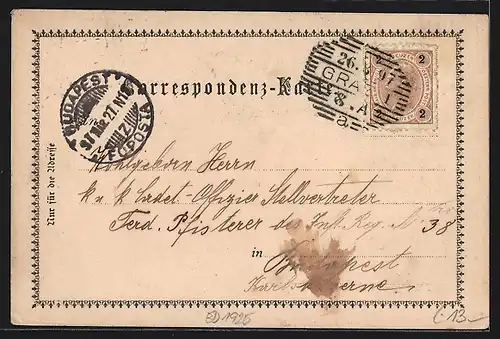 Correspondenz-Karte
26.
97
GRAZ
8 . A
a
1
2
2
BUDAPEST
97 MÁR 27
FŐPOSTA
An
Nur für die Adresse
Wohlgeborn Herrn
k. u. k. Cadet-Offizier Stellvertreter
Ferd. Pfisterer des Inf. Reg. N 38
in
Budapest
Karlskaserne.
ED 1925
(-13-